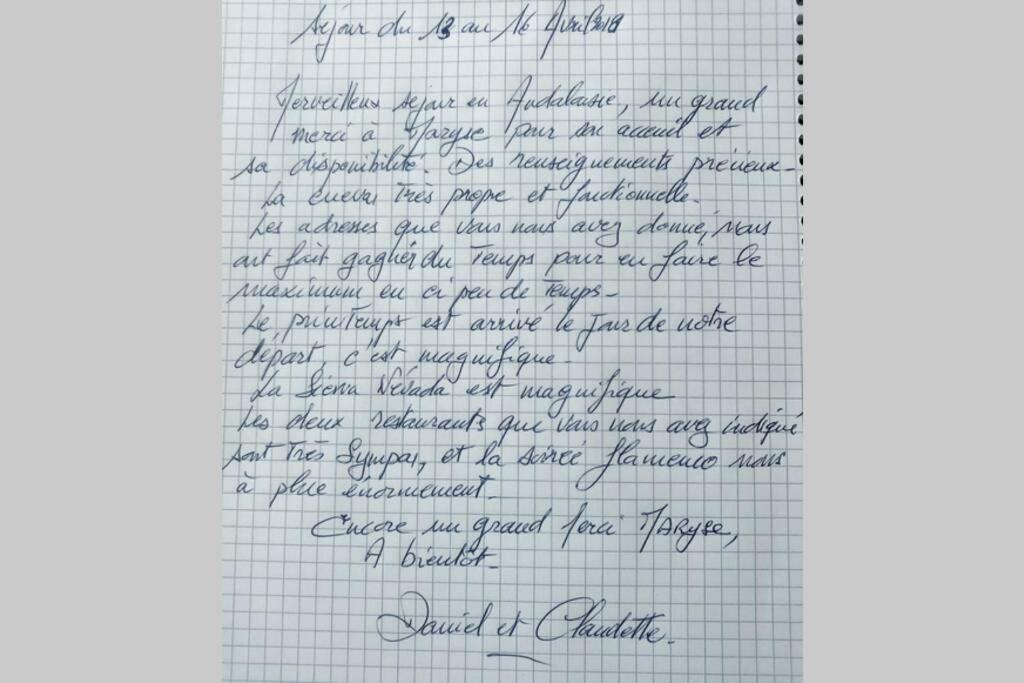 Séjour du 13 au 16 Avril 2018
Merveilleux séjour en Andalousie, un grand
merci à Maryse pour son acceuil et
sa disponibilité. Des renseignements précieux -
La cueva très propre et fonctionnelle.
Les adresses que vous nous avez donné, nous
ont fait gagner du temps pour en faire le
maximum en ci peu de temps -
Le printemps est arrivé le jour de notre
départ, c'est magnifique -
La Sierra Névada est magnifique
Les deux restaurants que vous nous avez indiqué
sont très sympas, et la soirée flamenco nous
à plue énormement -
Encore un grand Merci MARyse,
A bientôt -
Daniel et Claudette -